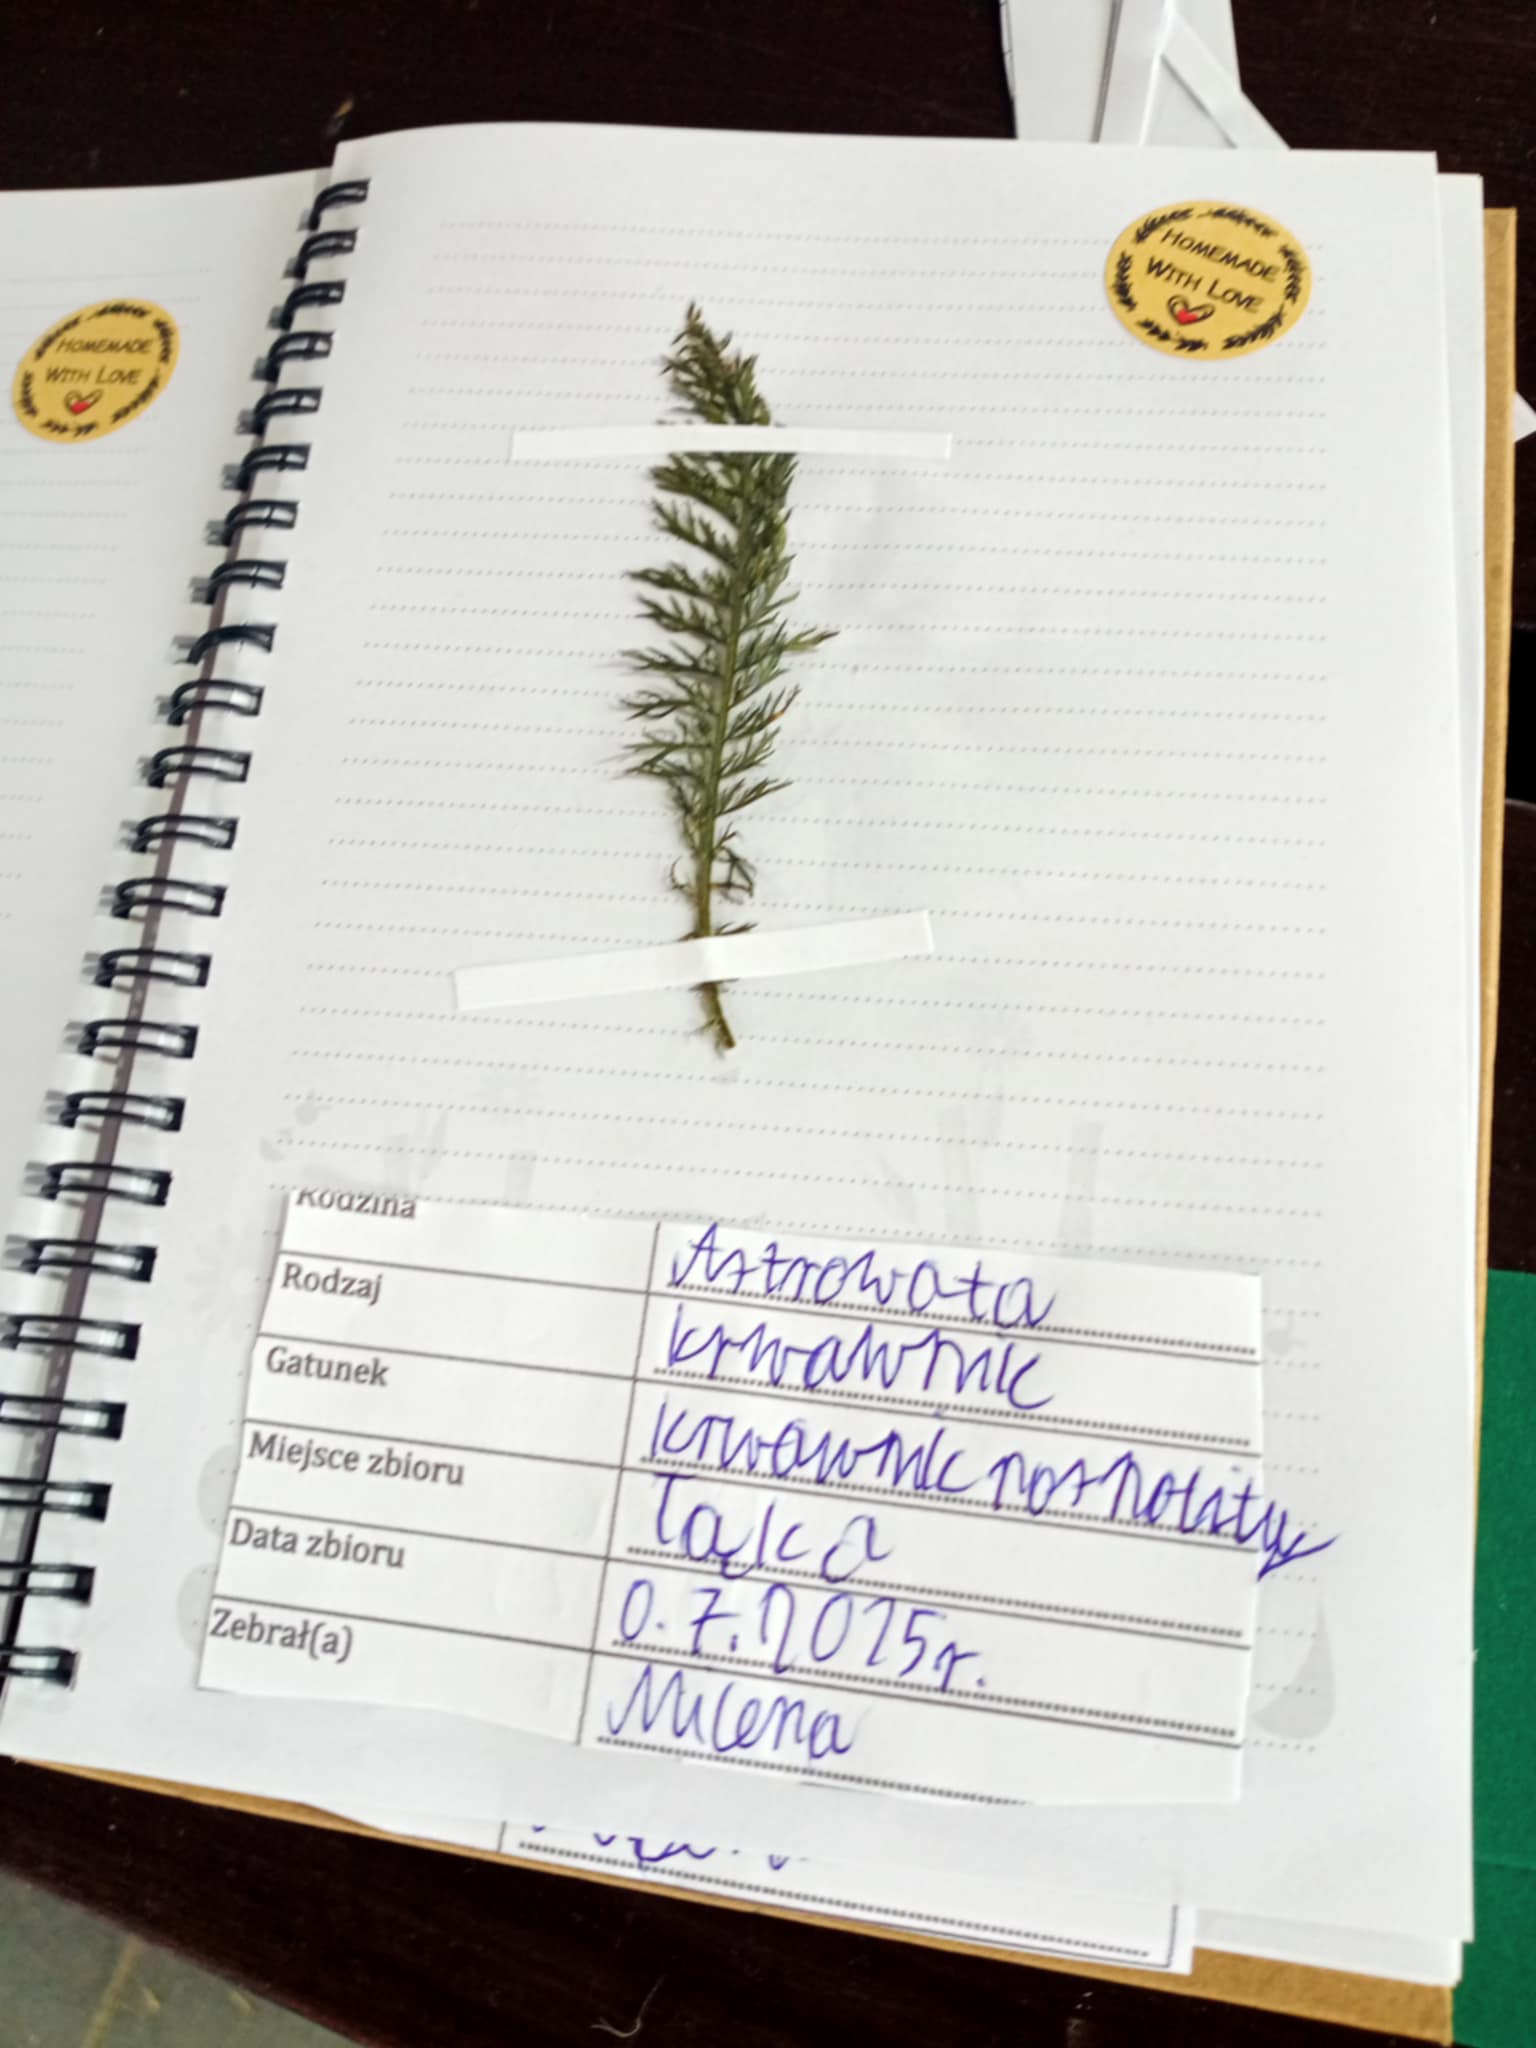 HOMEMADE
WITH LOVE
HOMEMADE
WITH LOVE
Rodzina Astrowata
Rodzaj krwawnik
Gatunek krwawnik pospolity
Miejsce zbioru Łąka
Data zbioru 0.7.2025r.
Zebrał(a) Milena